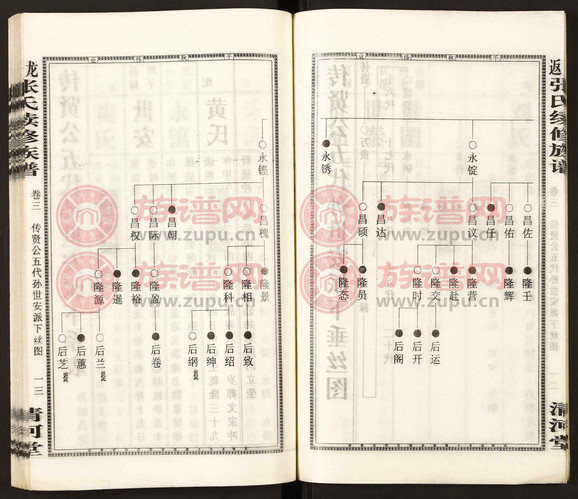 返
张氏续修族谱
卷三
清河堂
永锭
永锈
昌佐
昌佑
昌任
昌议
昌达
昌硕
隆壬
隆辉
隆营
隆赴
隆交
隆时
隆员
隆态
后运
后开
后阁
永铿
昌槐
昌朝
昌际
昌权
隆景
隆相
隆科
隆盈
隆裕
隆暹
隆源
后致
后绍
后绅
后纲
后卷
后兰
后蕙
后芝
龙
张氏续修族谱
卷三
传贤公五代孙世安派下丝图
一三
清河堂
族谱网
www.zupu.cn
族谱网
www.zupu.cn